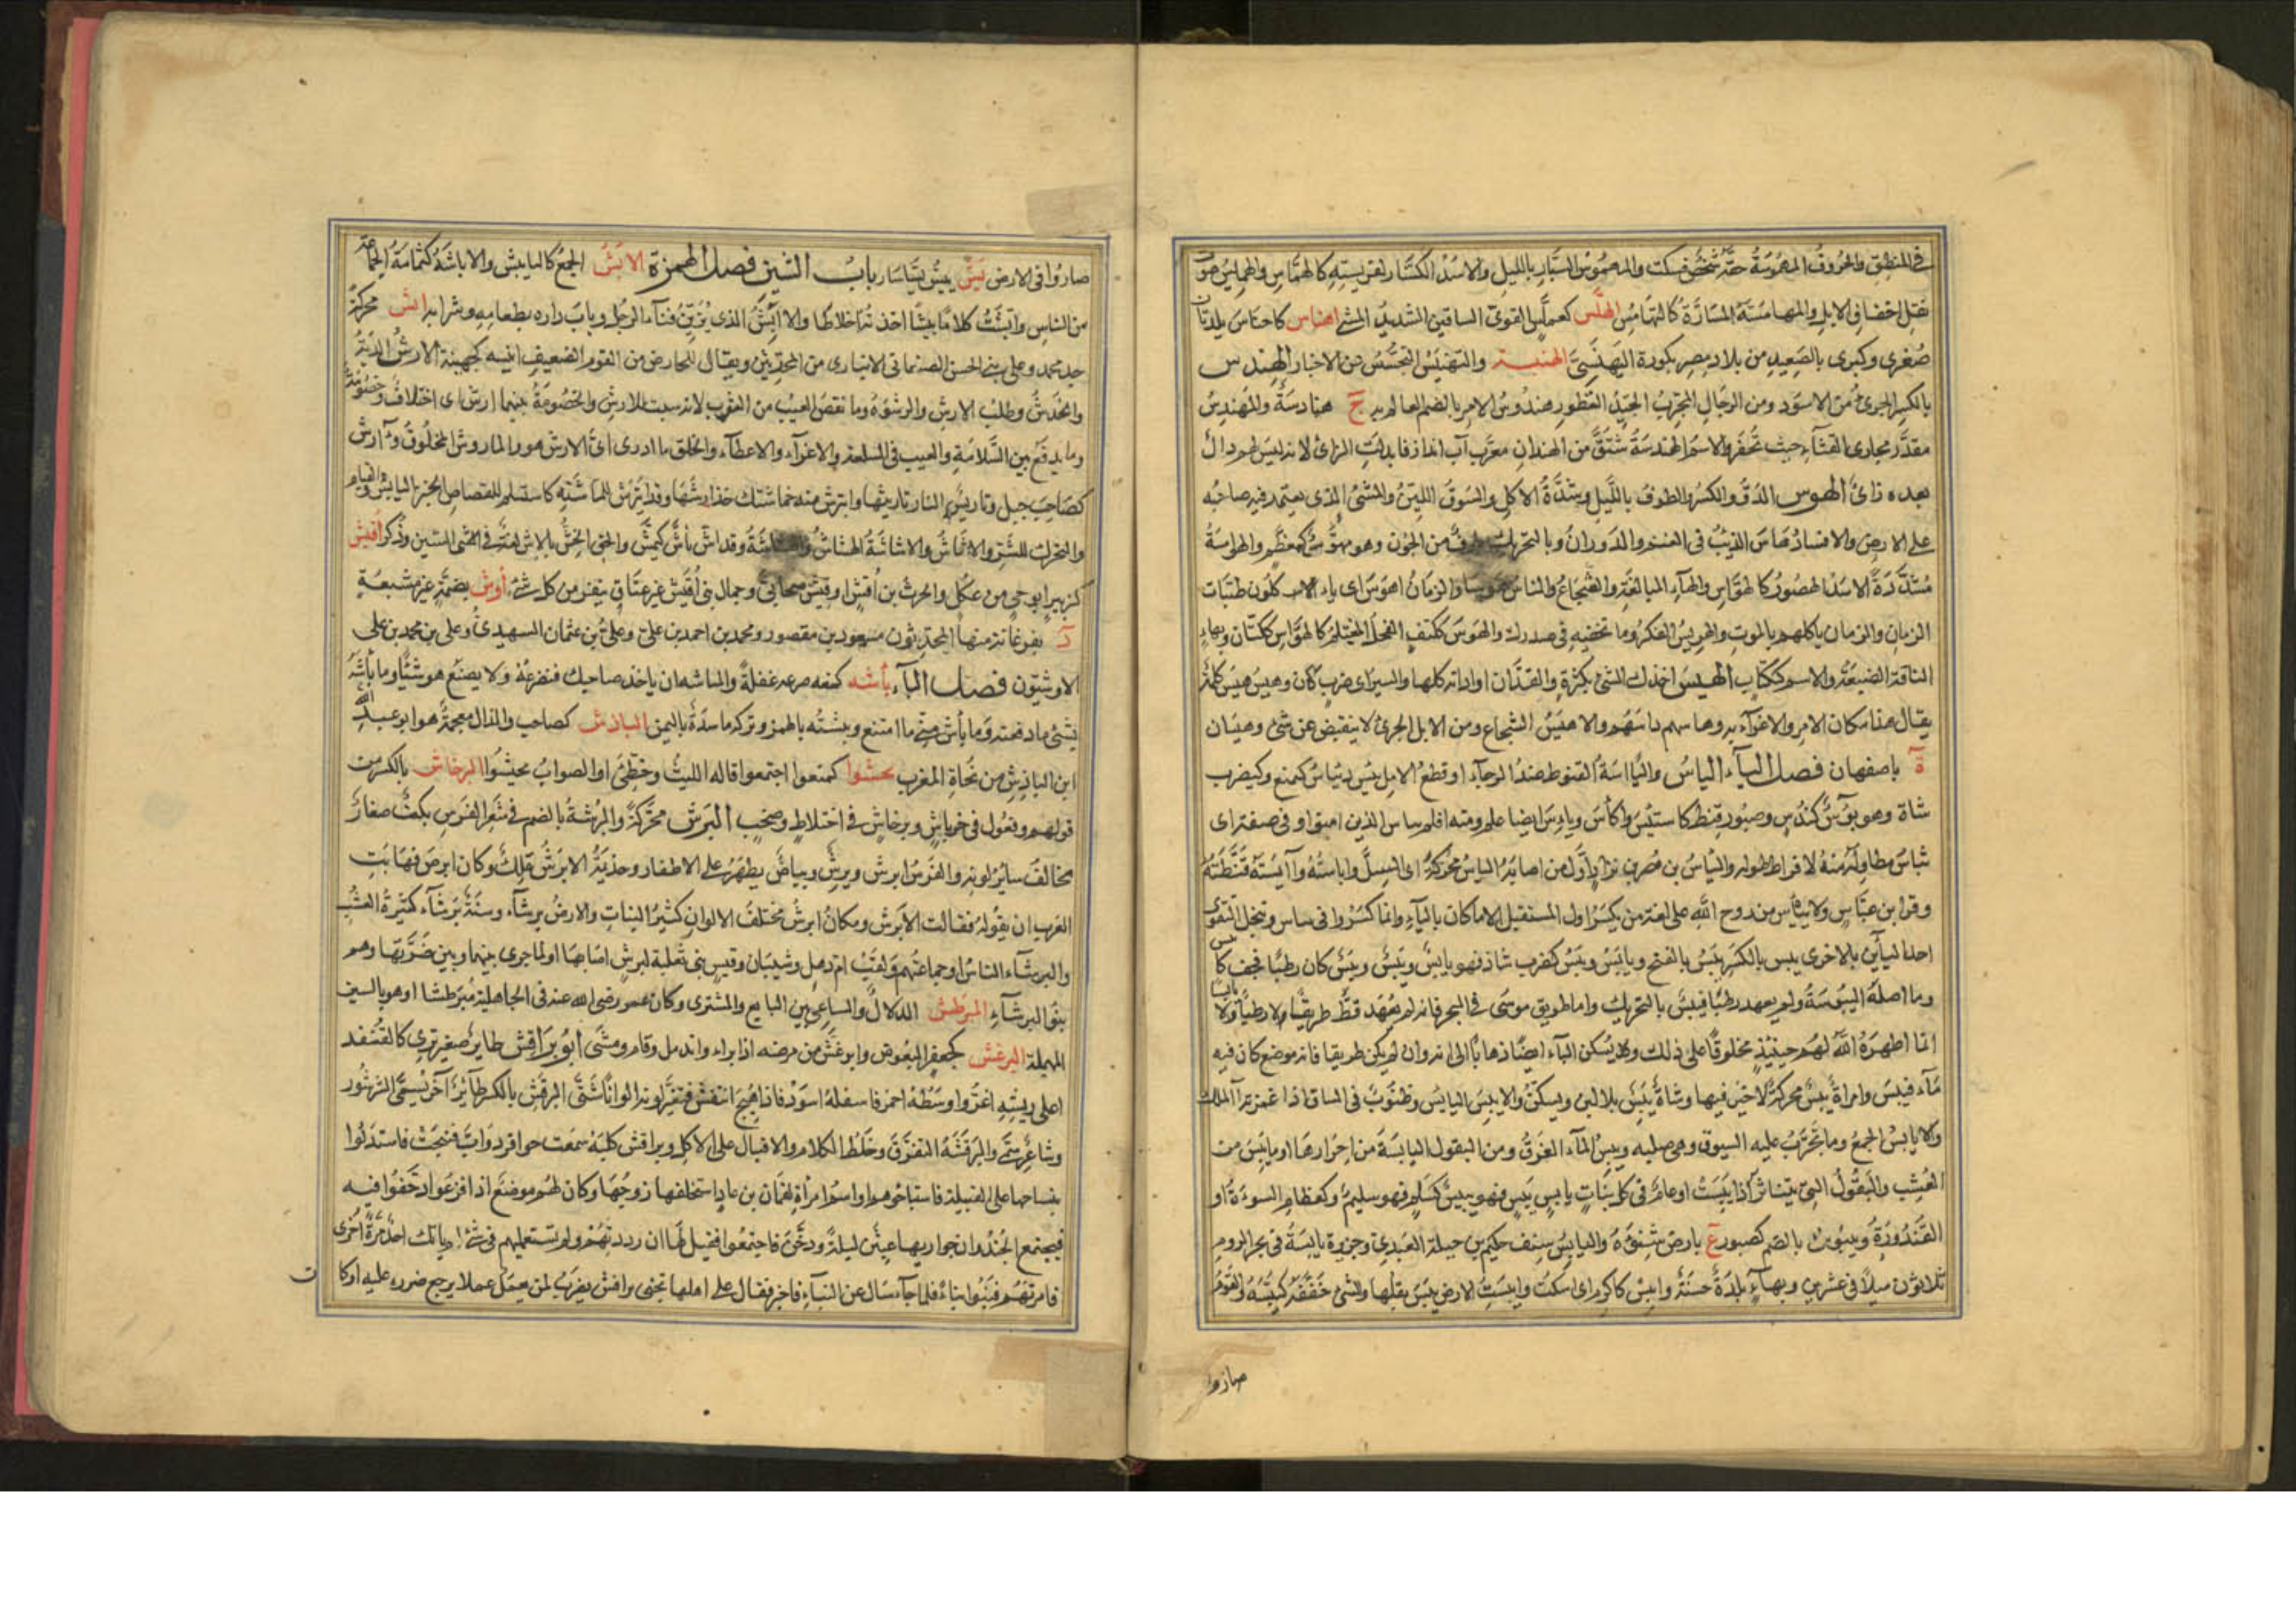 في المنطق والحروف المهموسة حثه شخص فسكت والهموس السيار بالليل والاسد الكسار لفريسته كالهماس والهميس صوت
نقل اخفاف الابل والمهامسة المسارة كالتهامس الهلس كعملس القوى الساقين الشديد المشى اهناس كاحناس بلدتان
صغرى وكبرى بالصعيد من بلاد مصر بكورة البهنسى الهنبسة والتهنبس التجسس عن الاخبار الهندس
بالكسر الجرئ من الاسود ومن الرجال المجرب الجيد النظر وهندوس الامر بالضم العالم به ج هنادسة والمهندس
مقدر مجارى القناء حيث تحفر والاسم الهندسة مشتق من الهنداز معرب آب انداز فابدلت الزاى لانه ليس لهم دال
بعده زاى الهوس الدق والكسر والطوف بالليل وشدة الاكل والسوق اللين والمشى الذى يعتمد فيه صاحبه
على الارض والافساد هاس الذيب فى الغنم والدوران وبالتحريك طرف من الجنون وهو مهوس كمعظم والهواسة
مشددة الاسد الهصور كالهواس والهاء للمبالغة والشجاع والناس هوسى والزمان اهوس اى ياكلون طيبات
الزمان والزمان ياكلهم بالموت والهويس الفكر وما تخفيه فى صدرك والهوس ككتف الفحل المغتلم كالهواس ككتان وبهاء
الناقة الضبعة والاسم ككتاب الهيس اخذك الشئ بكثرة والفدان او اداته كلها والسير اى ضرب كان وهيس هيس كلمة
يقال عند امكان الامر والاغراء به وهاسهم داسهم والاهيس الشجاع ومن الابل الجرئ لا ينقبض عن شئ وهيسان
ة باصفهان فصل الياء الياس والياسة القنوط ضد الرجاء او قطع الامل يئس ييأس كيمنع وكيضرب
شاذ وهو يؤس كندس وصبور قنط كاستيأس واتأس ويايس ايضا علم ومنه افلم يياس الذين امنوا وفى صفته اى
يياس مطاوله منه لافراط طوله والياس بن مضر بن نزار اول من اصابه الياس محركة اى السل واياسته وآيسته قنطته
وقرا ابن عباس ولا تياس من روح الله على لغة من يكسر اول المستقبل الا ما كان بالياء وانما كسروا فى يياس وييجل لتقوى
احدى اليائين بالاخرى يبس بالكسر ييبس بالفتح ويابس ويبس كيضرب شاذ فهو يابس ويبس ويبيس كان رطبا فجف كاتبس
وما اصله اليبوسة ولم يعهد رطبا فيبس بالتحريك واما طريق موسى فى البحر فانه لم يعهد قط طريقا لا رطبا ولا يابسا
انما اظهره الله لهم حينيذ مخلوقا على ذلك وقد يسكن الباء ايضا ذهابا الى انه وان لم يكن طريقا فانه موضع كان فيه
ماء فيبس وامراة يبس محركة لا خير فيها وشاة يبس بلا لبن ويسكن والايبس اليابس وظنبوب فى الساق اذا غمزته آلمك
والايابس الجمع وما تجرب عليه السيوف وهى صلبه ويبيس الماء العرق ومن البقول اليابسة من احرارها او ما يبس من
العشب والبقول التى يتناثر اذا يبست او عام فى كل نبات يابس يبس فهو يبيس كسلم فهو سليم وكقطام السوءة او
الفندورة ويبوس بالضم كصبور ع بارض شنوءة واليابس سيف حكيم بن جبلة العبدى وجزيرة يابسة فى بحر الروم
ثلاثون ميلا فى عشرين وبها بلدة حسنة وايبس كاكرم اى اسكت وايبست الارض يبس بقلها والشئ جففه كيبسه والقوم
صاروا
صاروا فى الارض يبس ييس يسا سار باب الشين فصل الهمزة الابش الجمع كالتابيش والاباشة كثمامة الجماعة
من الناس وابشت كلاما يبشا اخذته اخلاطا والا ابش الذى يزين فناء الرجل وباب داره بطعامه وشرابه اتش محركة
جد محمد وعلى بنى الحسن الصنعانى الانبارى من المحدثين ويقال للحارض من القوم الضعيف اتيسه كجهينة الارش الدية
والخدش وطلب الارش والرشوة وما نقص العيب من الثوب لانه سبب للارش والخصومة بينهما ارش اى اختلاف وخصومة
وما يدفع بين السلامة والعيب فى السلعة والاغراء والاعطاء والخلق ما ادرى اى الارش هو والماروش المخلوق وآرش
كصاحب جبل وتاريش النار تاريثها وايترش منه خماشتك خذ ارشها وقد ايترش للخماشته كاستسلم للقصاص الخبز اليابس والقيام
والتحرك للشر والاشاش والاشاشة الهشاش والهشاشة وقد اش يأش كيمش والجق الخش بالاش لغة فى الاسس بالسين وذكر اقيش
كزبير ابو حى من عكل والحرث بن اقيش او وقيش صحابى وجمال بنى اقيش غير عتاق تنفر من كل شئ أوش بضمة غير مشبعة
د بفرغانة منها المحدثون مسعود بن منصور ومحمد بن احمد بن على وعلى بن عثمان الشهيدى وعلى بن محمد بن على
الاوشيون فصل الباء بأشه كمنعه صرعه غفلة والمباشة ان ياخذ صاحبك فتصرعه ولا يصنع هو شئيا وما بأشه
بشئ ما دفعته وما بأش منى ما امتنع وبشته بالهمز وتركه ماسدة باليمن الباذش كصاحب والذال معجمة هو ابو عبد الله
ابن الباذش من نحاة المغرب بحشوا كمنعوا اجتمعوا قاله الليث وخطئ او الصواب تحبشوا البرخاش بالكسر من
قولهم وقعوا فى خرباش وبرخاش فى اختلاط وصخب البرش محركة والبرشة بالضم فى شعر الفرس نكت صغار
تخالف ساير لونه والفرس ابرش وبرش وبياض يظهر على الاظفار وجذيمة الابرش ملك وكان ابرص فهابت
العرب ان يقوله فقالت الابرش ومكان ابرش مختلف الالوان كثير النبات والارض برشاء وسنة برشاء كثيرة العشب
والبرشاء الناس او جماعتهم ولقب ام ذهل وشيبان وقيس بنى ثعلبة لبرش اصابها او لما جرى بينها وبين ضرتها وهم
بنو البرشاء المبرطش الدلال والساعى بين البايع والمشترى وكان عمر رضى الله عنه فى الجاهلية مبرطشا او هو بالسين
المهملة البرغش كجعفر البعوض وابرغش من مرضه اذا برا واندمل وقام ومشى ابو براقش طاير صغير برى كالقنفذ
اعلى ريشه اغر واوسطه احمر واسفله اسود فاذا هيج انتفش فتغير لونه الوانا شتى البرقش بالكسر طاير آخر يسمى الشرشور
وشاعر سمى والبرقشة التفرق وخلط الكلام والاقبال على الاكل وبراقش كلبة سمعت حوافر دواب فنبحت فاستدلوا
بنباحها على القبيلة فاستباحوهم او اسم امراة لقمان بن عاد استخلفها زوجها وكان لهم موضع اذا فزعوا دخنوا فيه
فيجتمع الجند وان جواريها عبثن ليلة ودخن فاجتمعوا فقيل لها ان رددتهم ولم تستعمليهم فى شئ لم ياتك احد مرة اخرى
فامرتهم فبنوا بناء فلما جاء سال عن البناء فاخبر فقال على اهلها تجنى براقش يضرب لمن يعمل عملا يرجع ضرره عليه او كا